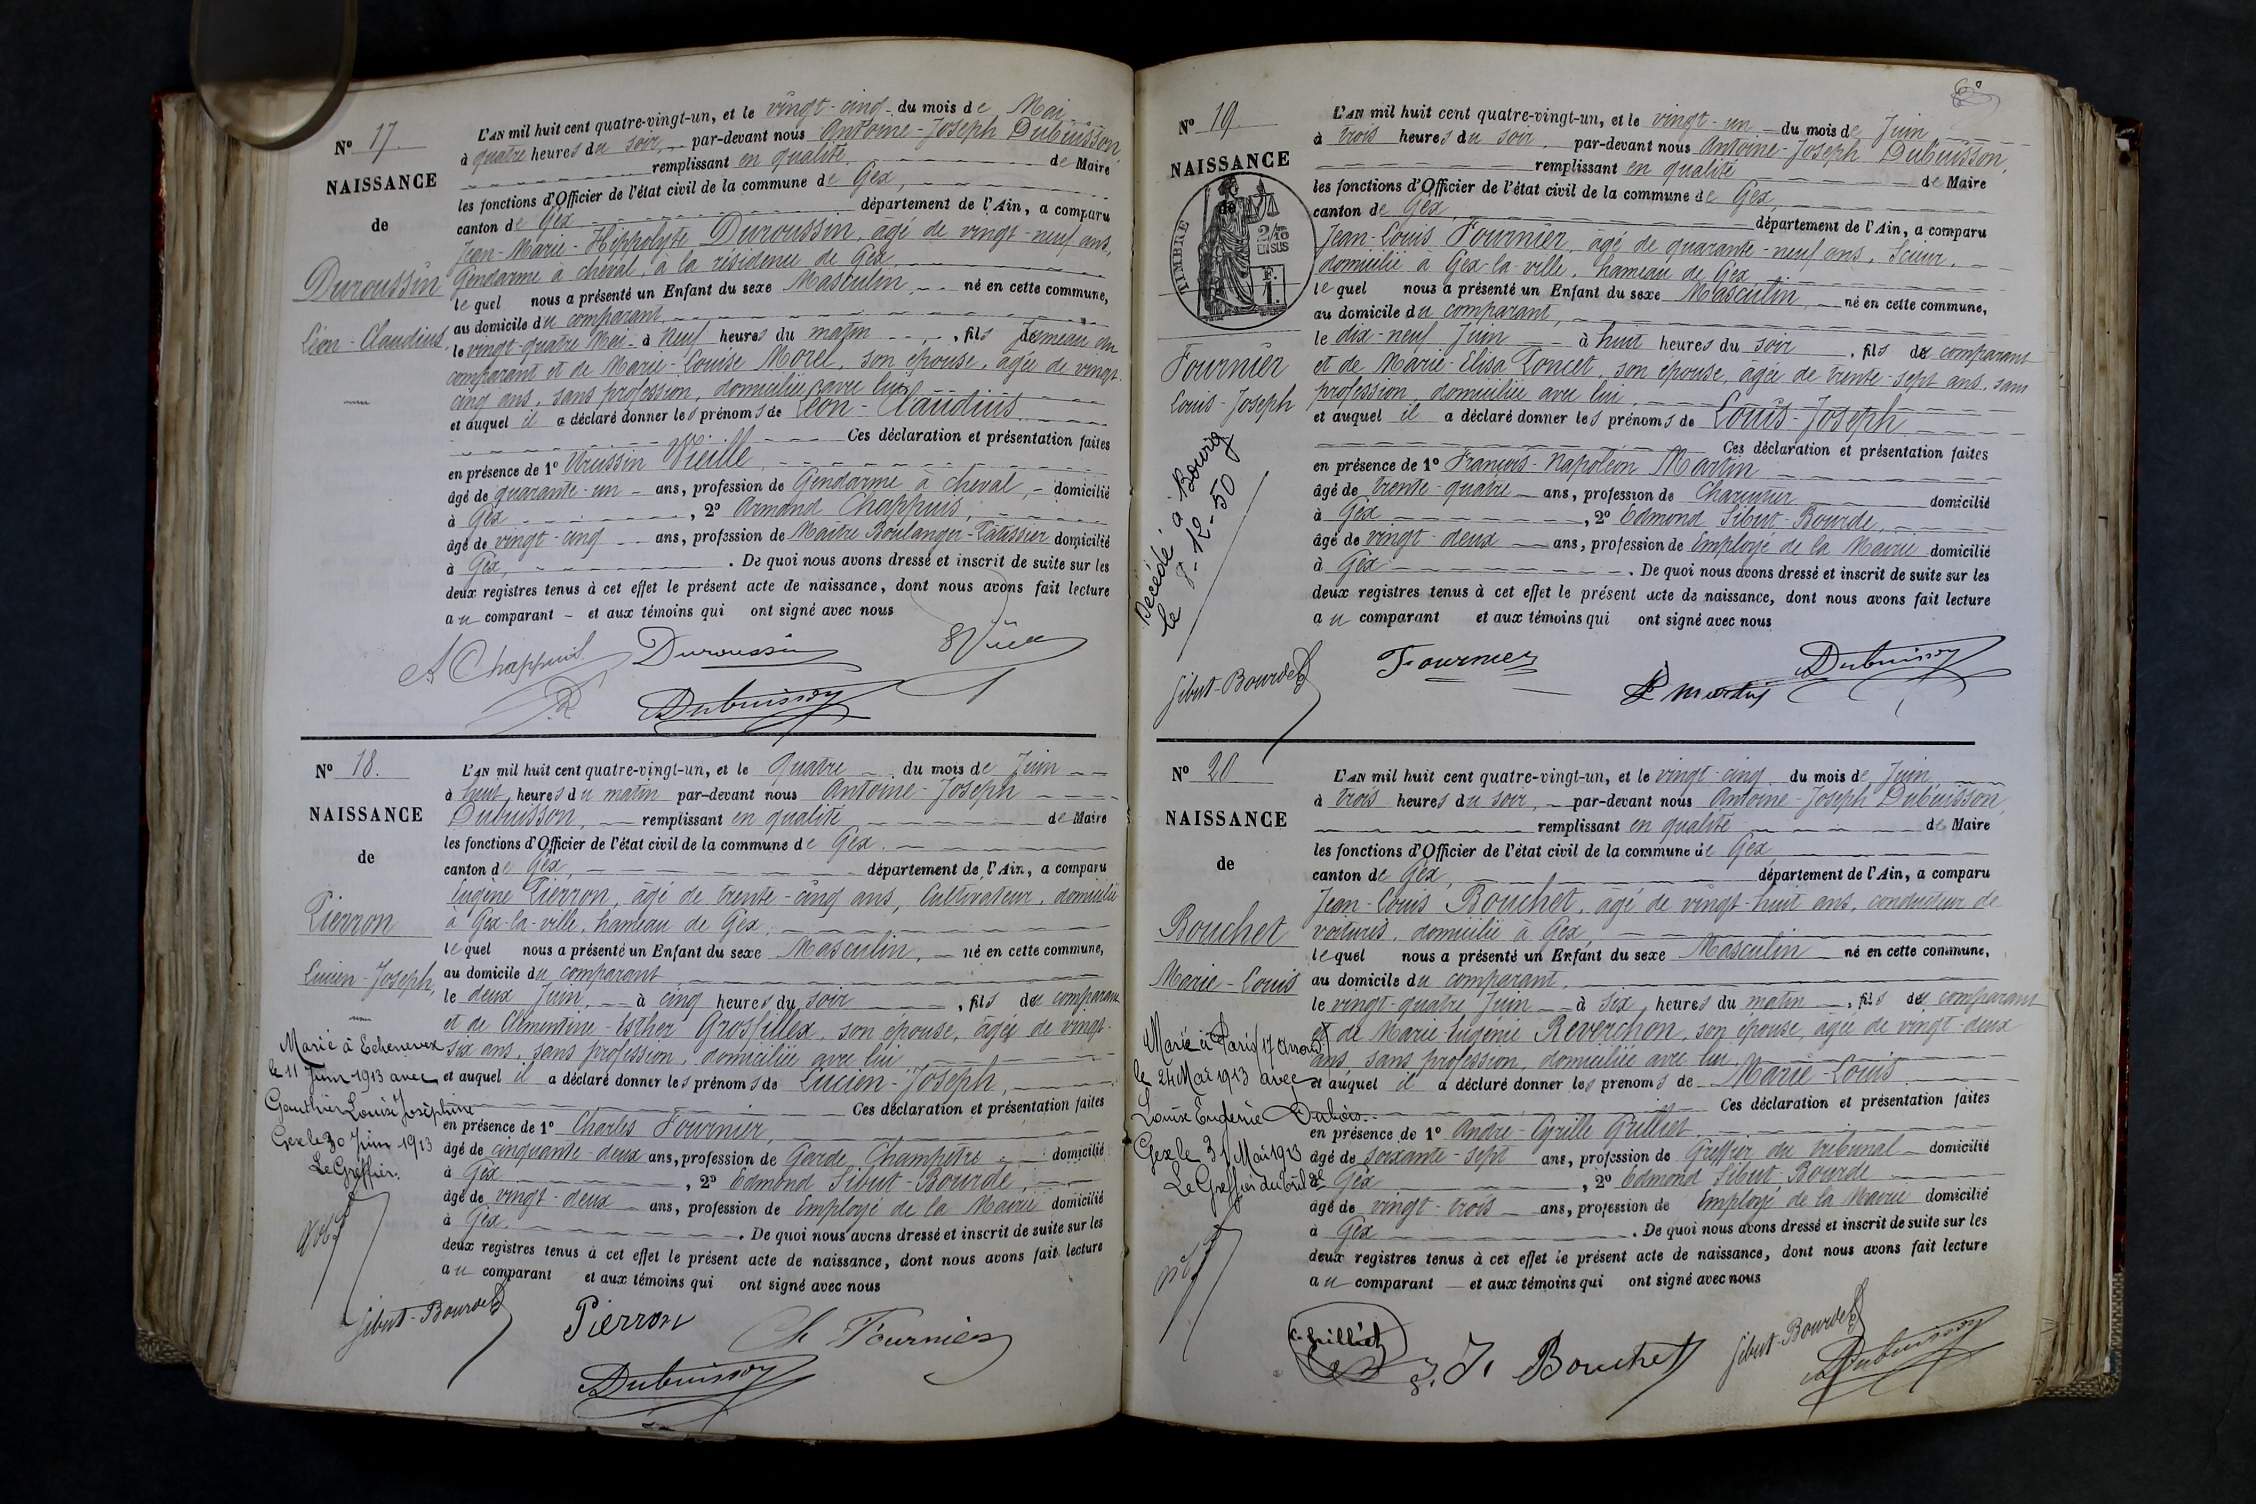 N° 17.
NAISSANCE
de
Duroussin
Léon-Claudius
L'AN mil huit cent quatre-vingt-un, et le vingt-cinq du mois de Mai
à quatre heures du soir, par-devant nous Antoine-Joseph Dubuisson
remplissant en qualité de Maire
les fonctions d'Officier de l'état civil de la commune de Gex,
canton de Gex département de l'Ain, a comparu
Jean-Marie-Hippolyte Duroussin, âgé de vingt-neuf ans,
Gendarme à cheval, à la résidence de Gex,
lequel nous a présenté un Enfant du sexe Masculin né en cette commune,
au domicile du comparant,
le vingt-quatre Mai à neuf heures du matin, fils jumeau du
comparant et de Marie-Louise Morel, son épouse, âgée de vingt-
cinq ans, sans profession, domiciliée avec lui
et auquel il a déclaré donner les prénoms de Léon-Claudius
Ces déclaration et présentation faites
en présence de 1° Vieille
âgé de quarante-un ans, profession de Gendarme à cheval, domicilié
à Gex, 2° Armand Chappuis,
âgé de vingt-cinq ans, profession de Maître Boulanger-Patissier domicilié
à Gex, . De quoi nous avons dressé et inscrit de suite sur les
deux registres tenus à cet effet le présent acte de naissance, dont nous avons fait lecture
au comparant et aux témoins qui ont signé avec nous
A Chappuis Duroussin
Dubuisson
N° 18.
NAISSANCE
de
Pierron
Lucien-Joseph,
Marié à Echenevex
le 11 Juin 1913 avec
Gauthier Louise Joséphine
Gex le 30 Juin 1913
Le Greffier.
L'AN mil huit cent quatre-vingt-un, et le quatre du mois de Juin
à huit heures du matin par-devant nous Antoine-Joseph
Dubuisson, remplissant en qualité de Maire
les fonctions d'Officier de l'état civil de la commune de Gex.
canton de Gex, département de l'Ain, a comparu
Eugène Pierron, âgé de trente-cinq ans, Cultivateur, domicilié
à Gex-la-ville, hameau de Gex,
lequel nous a présenté un Enfant du sexe Masculin, né en cette commune,
au domicile du comparant
le deux Juin, à cinq heures du soir, fils du comparant
et de Clémentine-Esther Grosfillex, son épouse, âgée de vingt-
six ans, sans profession, domiciliée avec lui
et auquel il a déclaré donner les prénoms de Lucien-Joseph,
Ces déclaration et présentation faites
en présence de 1° Charles Fournier,
âgé de cinquante-deux ans, profession de Garde Champêtre domicilié
à Gex, 2° Edmond Sibut-Bourde,
âgé de vingt-deux ans, profession de Employé de la Mairie domicilié
à Gex. . De quoi nous avons dressé et inscrit de suite sur les
deux registres tenus à cet effet le présent acte de naissance, dont nous avons fait lecture
au comparant et aux témoins qui ont signé avec nous
Sibut-Bourde Pierron Ch Fournier
Dubuisson
N° 19.
NAISSANCE
de
TIMBRE
2/10
EN SUS
Fournier
Louis-Joseph
Décédé à Bourg
le 7-12-50
L'AN mil huit cent quatre-vingt-un, et le vingt-un du mois de Juin
à trois heures du soir, par-devant nous Antoine-Joseph Dubuisson,
remplissant en qualité de Maire
les fonctions d'Officier de l'état civil de la commune de Gex,
canton de Gex, département de l'Ain, a comparu
Jean-Louis Fournier, âgé de quarante-neuf ans, Scieur,
domicilié à Gex-la-ville, hameau de Gex
lequel nous a présenté un Enfant du sexe Masculin, né en cette commune,
au domicile du comparant,
le dix-neuf Juin à huit heures du soir, fils du comparant
et de Marie-Elisa Poncet, son épouse, âgée de trente-sept ans, sans
profession, domiciliée avec lui,
et auquel il a déclaré donner les prénoms de Louis-Joseph
Ces déclaration et présentation faites
en présence de 1° François-Napoléon Martin
âgé de trente-quatre ans, profession de domicilié
à Gex, 2° Edmond Sibut-Bourde,
âgé de vingt-deux ans, profession de Employé de la Mairie domicilié
à Gex . De quoi nous avons dressé et inscrit de suite sur les
deux registres tenus à cet effet le présent acte de naissance, dont nous avons fait lecture
au comparant et aux témoins qui ont signé avec nous
Sibut-Bourde Fournier Martin Dubuisson
N° 20
NAISSANCE
de
Bouchet
Marie-Louis
Marié à Paris 17 arrond.
le 24 Mai 1913 avec
Louise Eugénie Dubois.
Gex le 31 Mai 1913
Le Greffier du Tral
L'AN mil huit cent quatre-vingt-un, et le vingt-cinq du mois de Juin
à trois heures du soir, par-devant nous Antoine-Joseph Dubuisson,
remplissant en qualité de Maire
les fonctions d'Officier de l'état civil de la commune de Gex,
canton de Gex, département de l'Ain, a comparu
Jean-Louis Bouchet, âgé de vingt-huit ans, conducteur de
voitures, domicilié à Gex,
lequel nous a présenté un Enfant du sexe Masculin né en cette commune,
au domicile du comparant,
le vingt-quatre Juin à six heures du matin, fils du comparant
et de Marie-Eugénie Reverchon, son épouse, âgée de vingt-deux
ans, sans profession, domiciliée avec lui
et auquel il a déclaré donner les prénoms de Marie-Louis
Ces déclaration et présentation faites
en présence de 1° André-Cyrille Grilliet
âgé de soixante-sept ans, profession de Greffier du tribunal domicilié
à Gex, 2° Edmond Sibut-Bourde
âgé de vingt-trois ans, profession de Employé de la Mairie domicilié
à Gex . De quoi nous avons dressé et inscrit de suite sur les
deux registres tenus à cet effet le présent acte de naissance, dont nous avons fait lecture
au comparant et aux témoins qui ont signé avec nous
C. Grilliet J. Bouchet Sibut-Bourde
Dubuisson